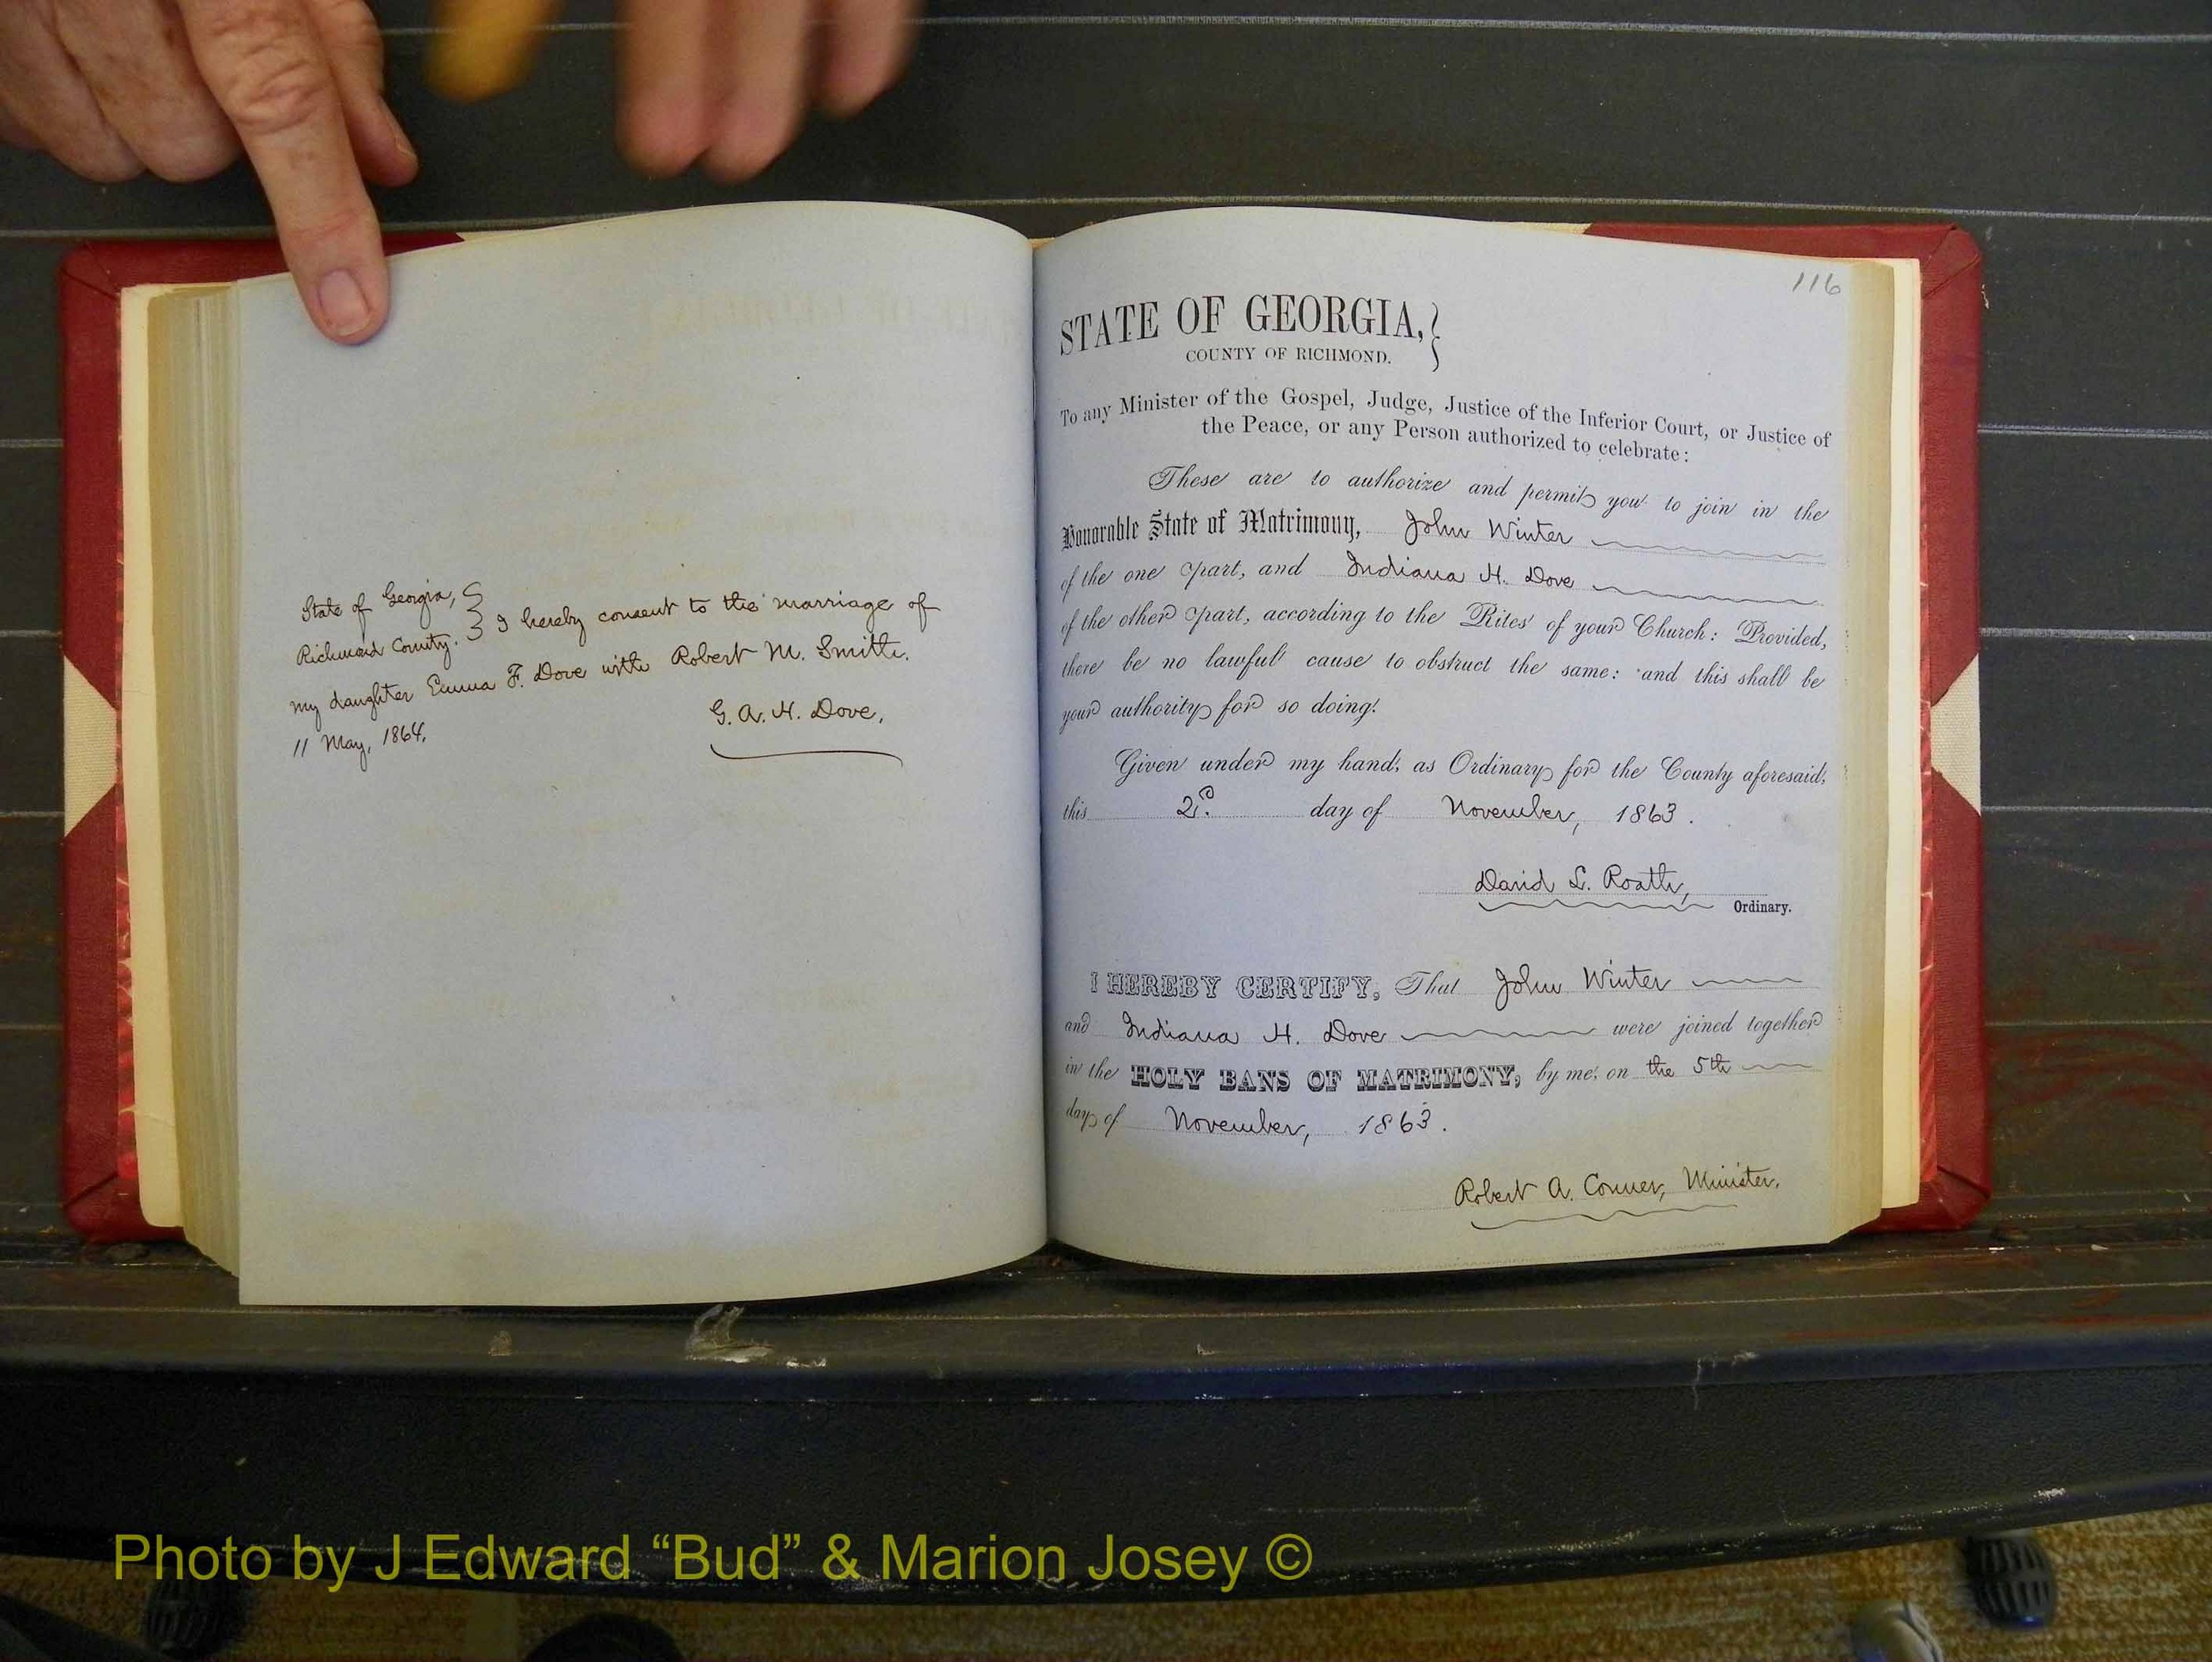 State of Georgia,
Richmond County. } I hereby consent to the marriage of
my daughter Emma F. Dove with Robert M. Smith.
G. A. H. Dove,
11 May, 1864.
116
STATE OF GEORGIA,
COUNTY OF RICHMOND.
To any Minister of the Gospel, Judge, Justice of the Inferior Court, or Justice of
the Peace, or any Person authorized to celebrate:
These are to authorize and permit you to join in the
Honorable State of Matrimony, John Winter
of the one part, and Indiana H. Dove
of the other part, according to the Rites of your Church: Provided,
there be no lawful cause to obstruct the same: and this shall be
your authority for so doing.
Given under my hand, as Ordinary for the County aforesaid,
this 2d. day of November, 1863.
David L. Roath,
Ordinary.
I HEREBY CERTIFY, That John Winter
and Indiana H. Dove were joined together
in the HOLY BANS OF MATRIMONY, by me, on the 5th
day of November, 1863.
Robert A. Conner, Minister.
Photo by J Edward “Bud” & Marion Josey ©